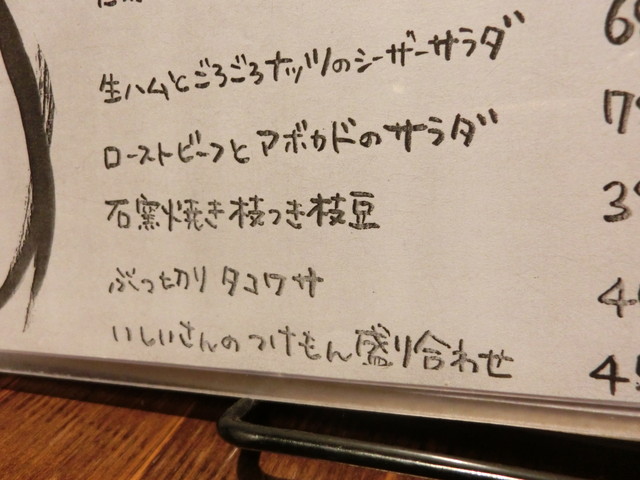 生ハムとごろごろナッツのシーザーサラダ 6
ローストビーフとアボカドのサラダ 7
石窯焼き枝つき枝豆 3
ぶつ切りタコワサ 4
いしいさんのつけもん盛り合わせ 45